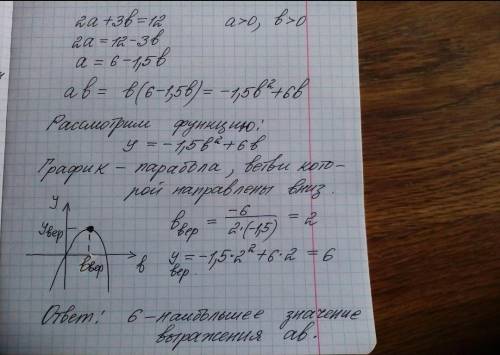 2a+3b=12 a>0, b>0
2a=12-3b
a=6-1,5b
ab= b(6-1,5b)=-1,5b²+6b
Рассмотрим функцию:
y=-1,5b²+6b
График - парабола, ветви кото-
рой направлены вниз.
y
b вер = -6/2·(-1,5) = 2
y вер
y вер = -1,5·2²+6·2 = 6
b вер b
Ответ: 6-наибольшее значение
выражения ab.